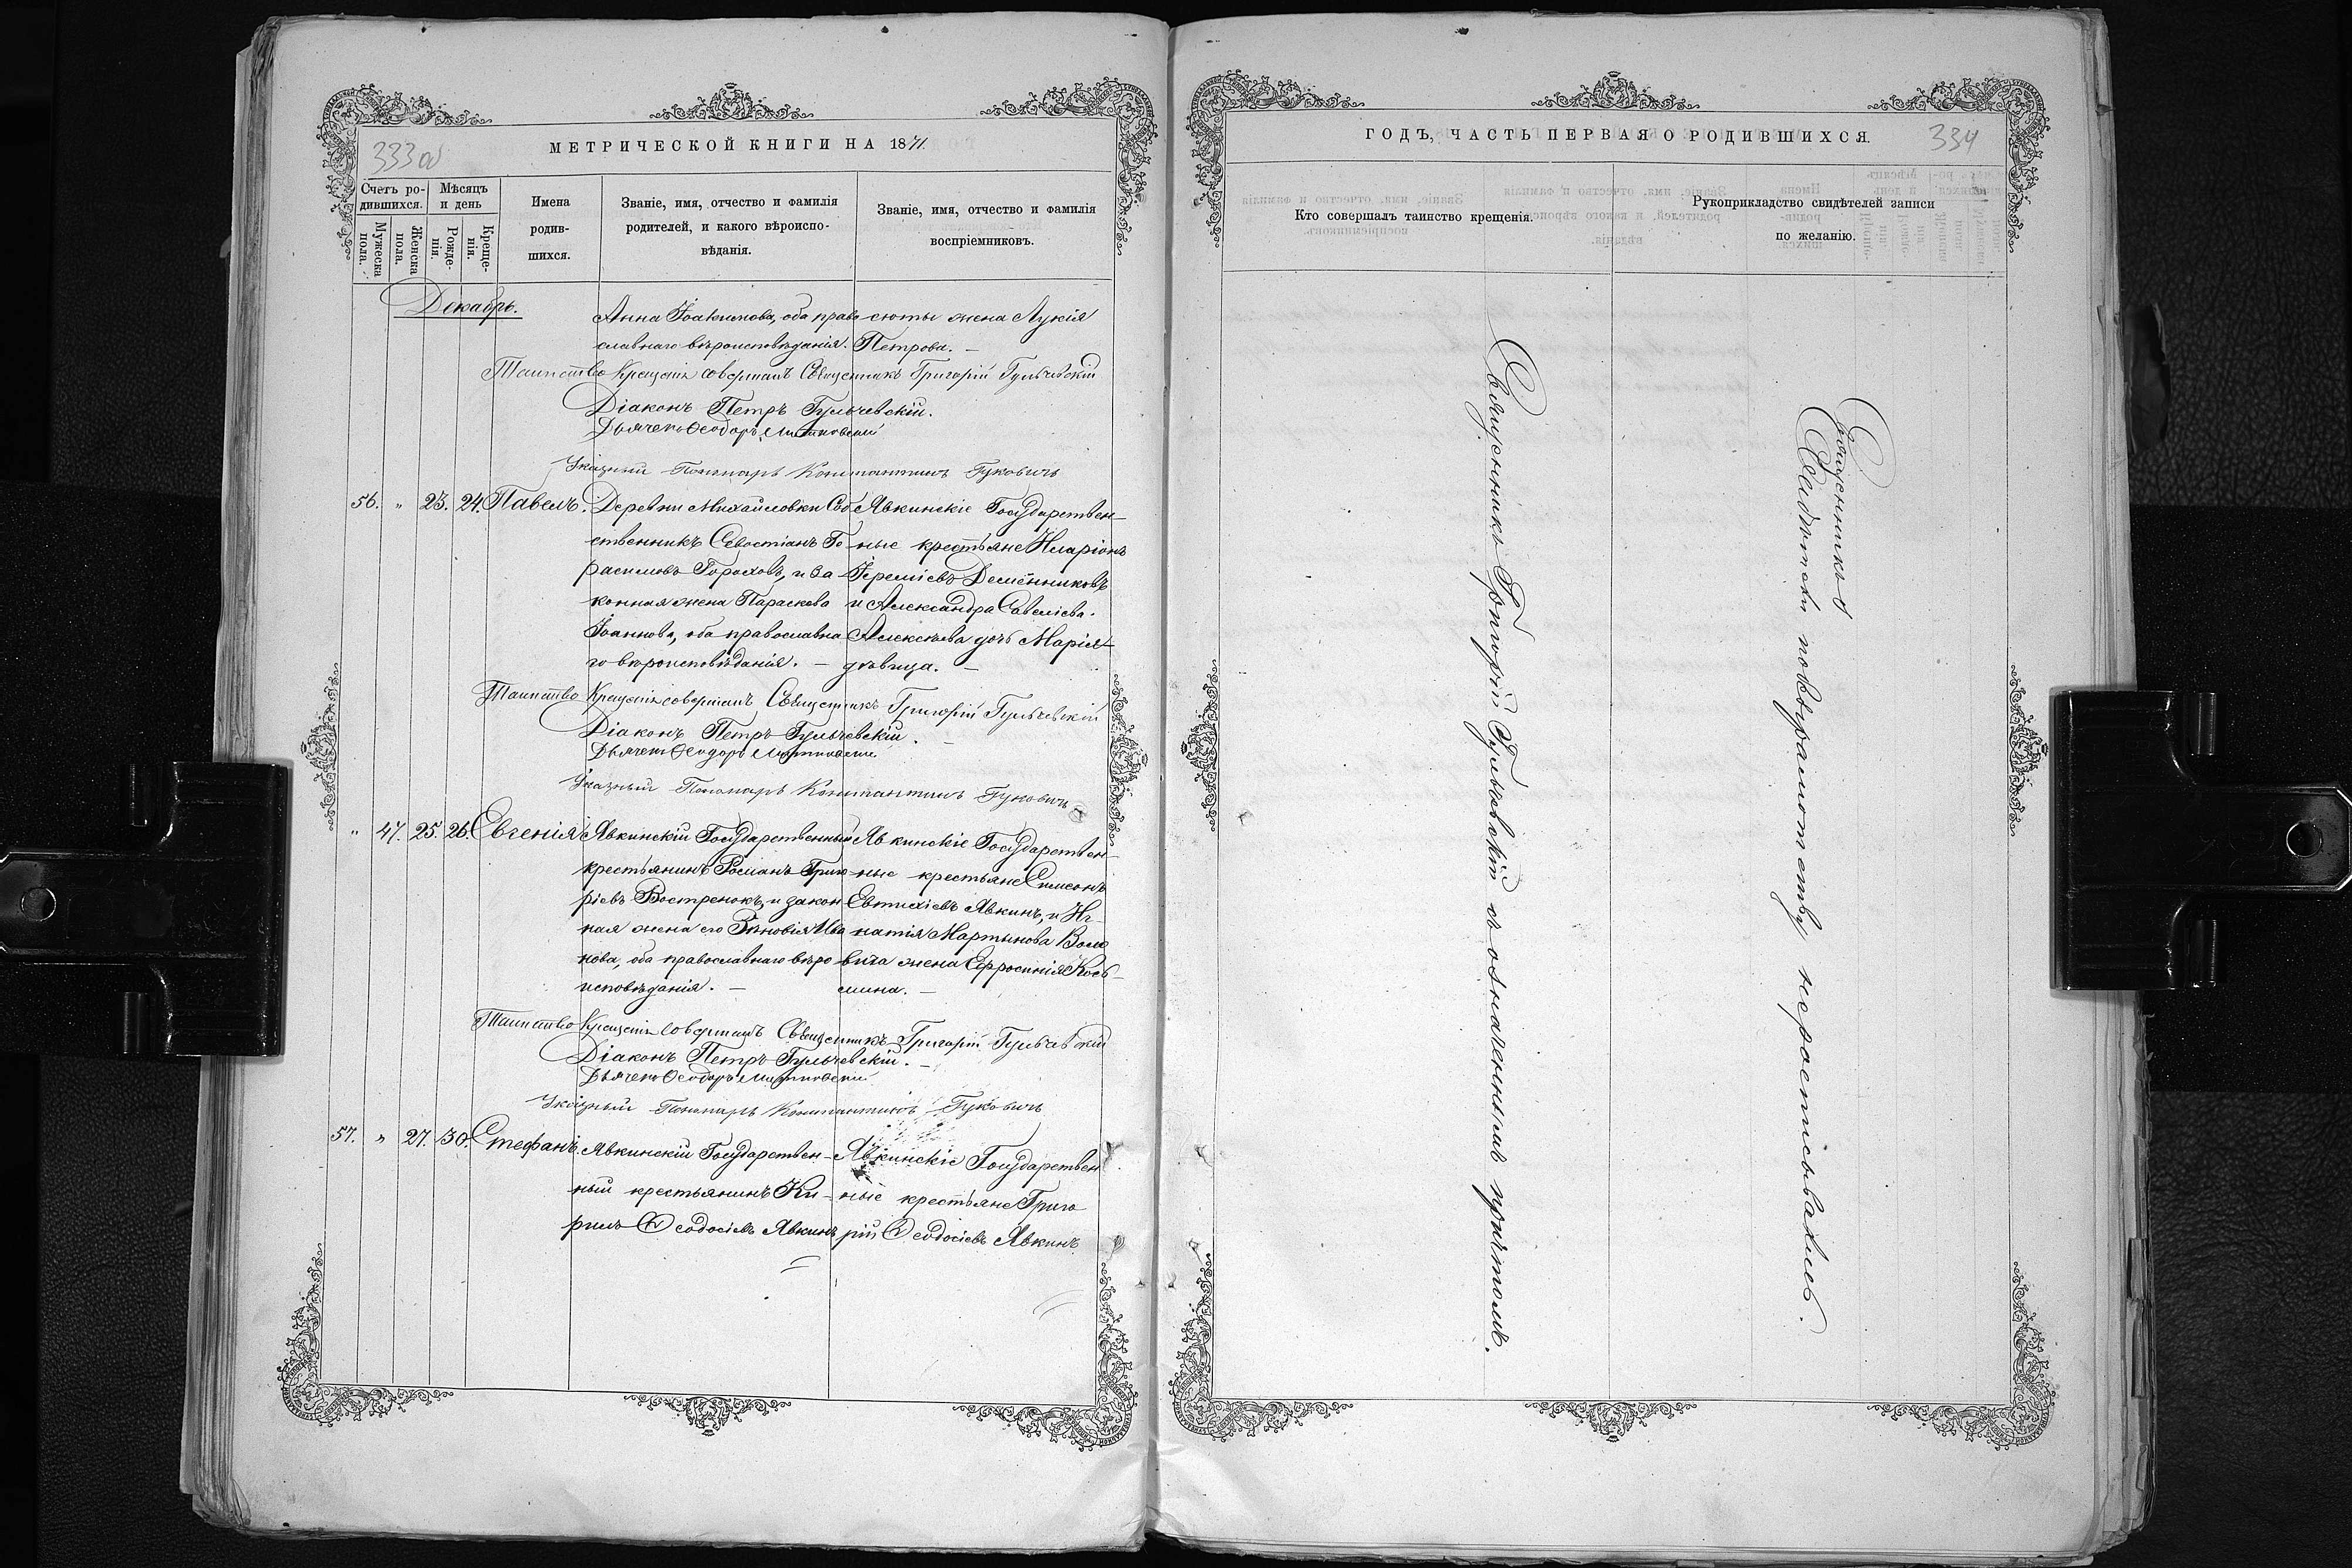 333об
МЕТРИЧЕСКОЙ КНИГИ НА 1871
Счетъ ро-
дившихся.
Мѣсяцъ
и день
Мужеска
пола.
Женска
пола.
Рожде-
нія.
Креще-
нія.
Имена
родив-
шихся.
Званіе, имя, отчество и фамилія
родителей, и какого вѣроиспо-
вѣданія.
Званіе, имя, отчество и фамилія
воспріемниковъ.
Декабрь.
Анна Іоакимова, оба право
славнаго вѣроисповѣданія.
сюты жена Лукія
Петрова. —
Таинство Крещенія совершалъ Священникъ Григорій Гульчевскій
Діаконъ Петръ Гульчевскій.
Дьячекъ Ѳеодоръ
Указный Пономарь Константинъ Гуковичъ
56. " 23. 24. Павелъ.
Деревни Михайловки Соб
ственникъ Севостіанъ Ге
расимовъ Гороховъ, и за
конная жена Параскева
Іоаннова, оба православна
го вѣроисповѣданія. —
Явкинскіе Государствен-
ные крестьяне Иларіонъ
Іереміевъ
и Александра Савеліева
Алексѣева дочь Марія
дѣвица. —
Таинство Крещенія совершалъ Священникъ Григорій Гульчевскій
Діаконъ Петръ Гульчевскій. —
Дьячекъ Ѳеодоръ
Указный Пономарь Константинъ Гуковичъ
" 47. 25. 26. Евгенія
Явкинскій Государственный
крестьянинъ Романъ Григо
ріевъ Востренокъ, и закон
ная жена его Зиновія Ива
нова, оба православнаго вѣро
исповѣданія. —
Явкинскіе Государствен-
ные крестьяне Симеонъ
Евтихіевъ Явкинъ, и Иг-
натія Мартынова
жена Ефросинія Козь-
мина. —
Таинство Крещенія совершалъ Священникъ Григорій Гульчевскій
Діаконъ Петръ Гульчевскій. —
Дьячекъ Ѳеодоръ
Указный Пономарь Константинъ Гуковичъ
57. " 27. 30. Стефанъ.
Явкинскій Государствен-
ный крестьянинъ Ки-
рилъ Ѳеодосіевъ Явкинъ
Явкинскіе Государствен
ные крестьяне Григо
рій Ѳеодосіевъ Явкинъ
ГОДЪ, ЧАСТЬ ПЕРВАЯ О РОДИВШИХСЯ.
334
Кто совершалъ таинство крещенія.
Рукоприкладство свидѣтелей записи
по желанію.
Священникъ Григорій Гульчевскій съ означеннымъ причтомъ.
Священникъ
Свидѣтели по безграмотству не расписывались.